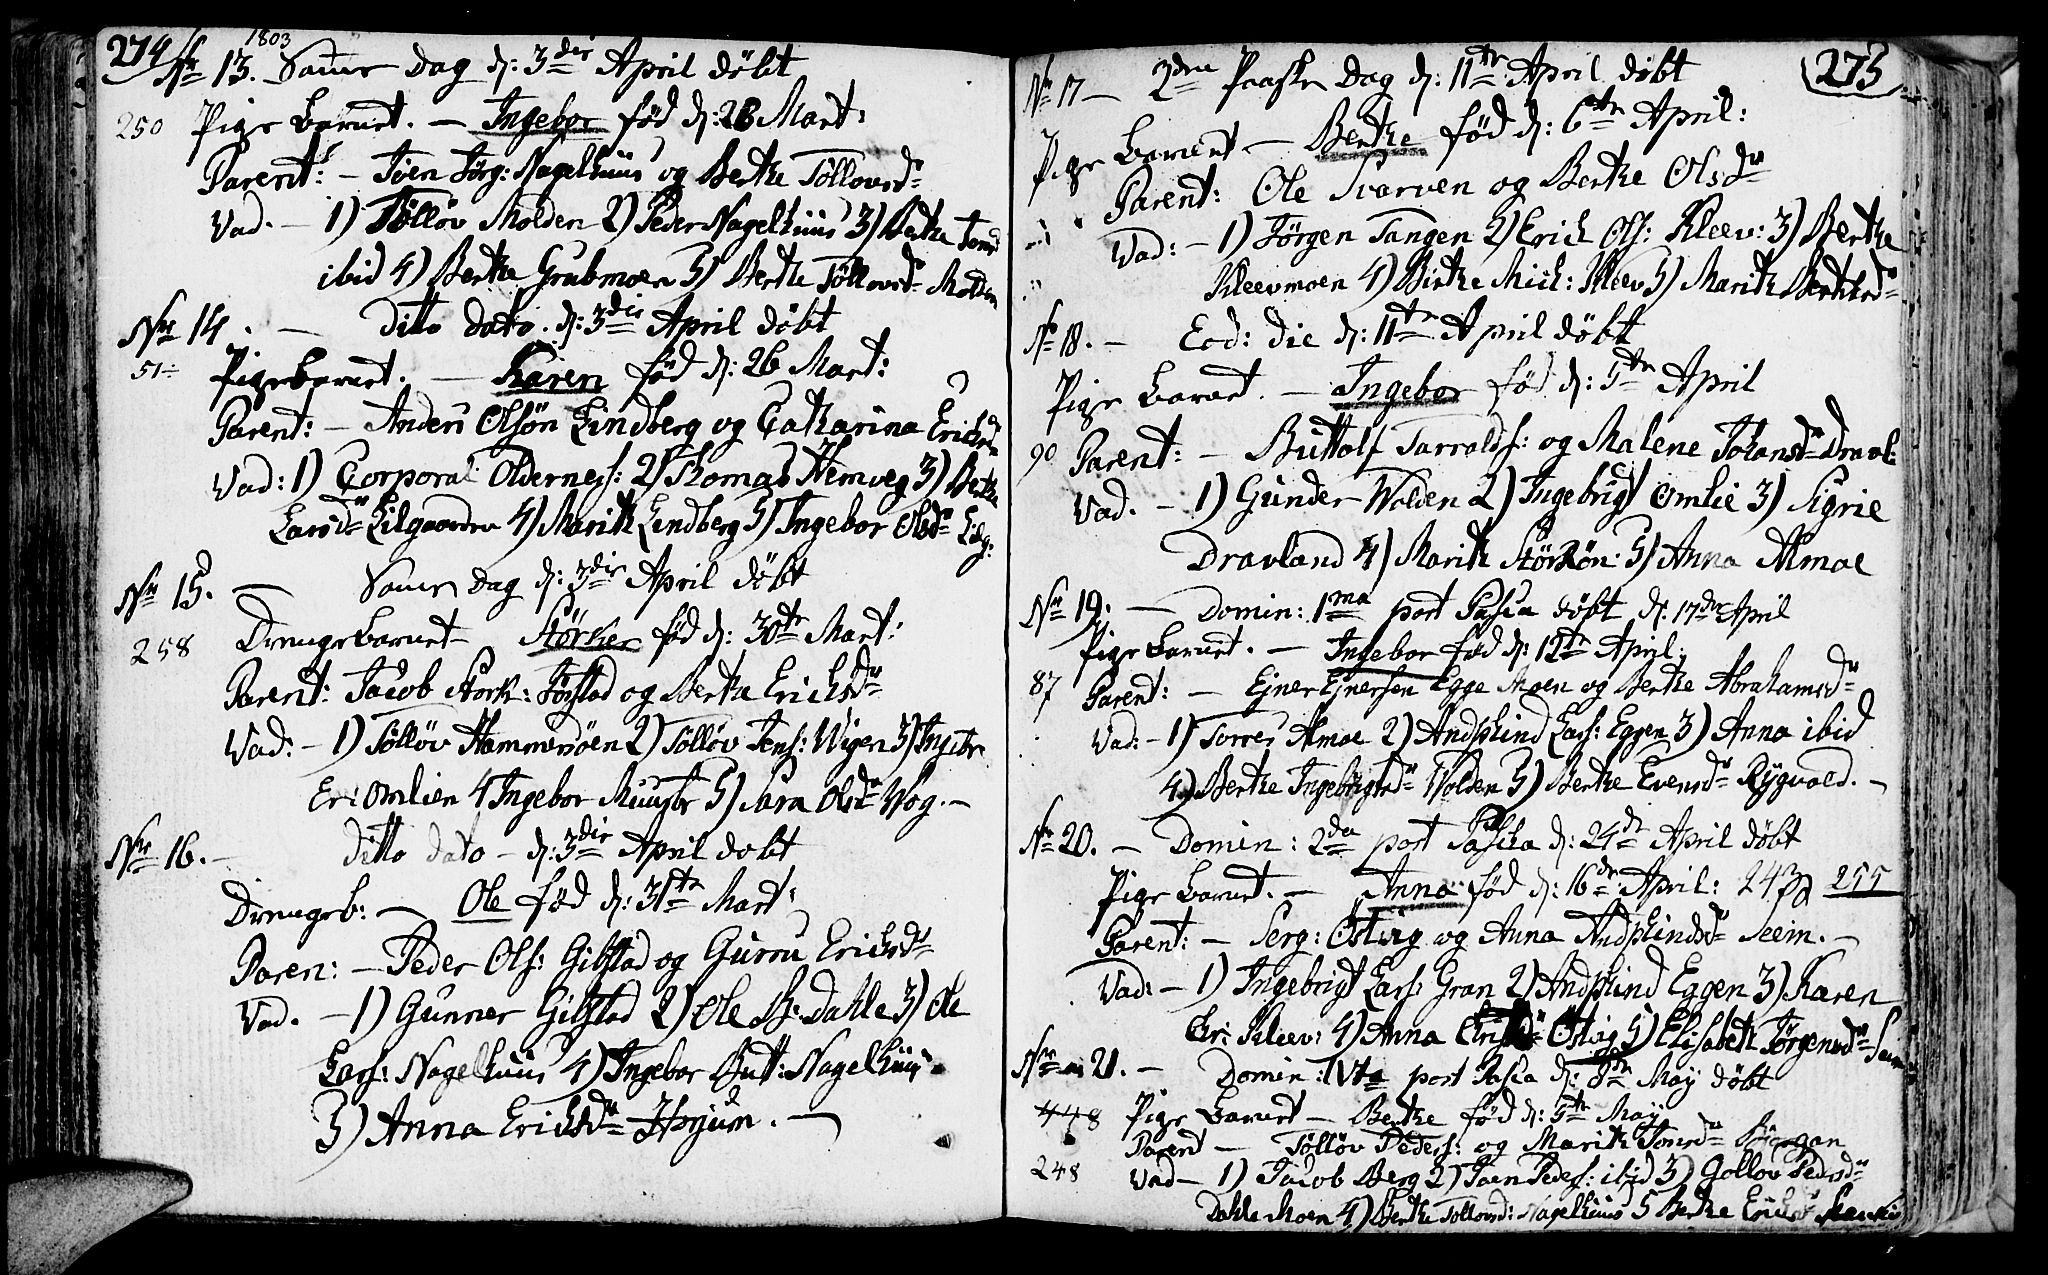 274
1803
No 13. Samme Dag d: 3die April döbt
250 Pige Barnet. — Ingebor föd d: 26 Mart:
Parent: — Joen Jörg: Nagelhuus og Berthe Töllovsdr
Vad. — 1) Töllöv Molden 2) Peder Nagelhuus 3) Berthe Joensd
ibid 4) Berthe Grubmoen 5) Berthe Töllovsdr Molden
No 14. — Ditto Dato. d: 3die April döbt
51 Pigebarnet. — Karen föd d: 26 Mart:
Parent: — Anders Olsön Lindberg og Catharina Ericksdr
Vad: 1) Corporal Oldernes: 2) Thomas Hemveg 3) Berthe
Larsdr Lilgaarden 4) Marith Lindberg 5) Ingebor Olsdr Lilg:
No 15. — Samme Dag d: 3die April döbt
258 Drengebarnet — Störker föd d: 30te Mart:
Parent: Jacob Stork: Forstad og Bertha Ericksdr
Vad: — 1) Töllöv Hammermoen 2) Töllöv Jens: Wigen 3) Ingebr
Er: Omlien 4 Ingebor Muusbr 5) Sara Olsdr Wog. —
No 16. — Ditto dato — d: 3die April dobt
Drengeb: — Ole föd d: 31te Mart:
Paren: — Peder Ols: Gibstad og Gurru Ericksdr
Vad. — 1) Gunner Gibstad 2) Ole B: Dahle 3) Ole
Lars: Nagelhuus 4) Ingebor Butt: Nagelhuus
5) Anna Ericksdr —
275
No 17 — 2den Paaske Dag d: 11te April döbt
Pige Barnet — Berthe föd d: 6te April:
Parent: Ole Svarven og Berthe Olsdr
Vad: — 1) Jörgen Tangen 2) Erick Ols: Kleev: 3) Berthe
Kleevmoen 4) Birthe Mich: Kleev 5) Marith Berthelsdr
No 18. — Eod: die d: 11te April döbt
Pige Barnet. — Ingebor föd d: 5te April
90 Parent: — Buttolf Tarralds: og Malene Johansdr Dravl:
Vad. — 1) Gunder Wolden 2) Ingebrigt Omlie 3) Sigrie
Dravland 4) Marith Störsön: 5) Anna Almoe
No 19. — Domin: 1ma post Pasca döbt d: 17de April
Pige Barnet. — Ingebor föd d: 12te April:
87 Parent: — Ejner Ejnersen Egge Moen og Berthe Abrahamsdr
Vad: — 1) Torres Almoe 2) Andskind Lars: Eggen 3) Anna ibid
4) Berthe Ingebrigtsdr Wolden 5) Berthe Evensdr Rygvold. —
No 20. — Domin: 2da post Pasca d: 24de April döbt
Pige Barnet. — Anna föd d: 16de April: 243 255
Parent: — Serg: Östvig og Anna Andskindsdr Seem. —
Vad: — 1) Ingebrigt Lars: Gran 2) Andskind Eggen 3) Karen
Er: Kleev: 4) Anna Östvig 5) Elisabeth Jörgensdr Seem
No 21. — Domin: IVta post Pasca d: 8de Maÿ döbt
448 Pige Barnet — Berthe föd d: 5te Maÿ
Parent — Töllöv Peders: og Marith Joensdr Biörgan
248 Vad — 1) Jacob Berg 2) Joen Peders: ibid 3) Gollov Pedersdr
Dahle Moen 4) Berthe Tollovsd: Nagelhuus 5 Berthe Ericksdr